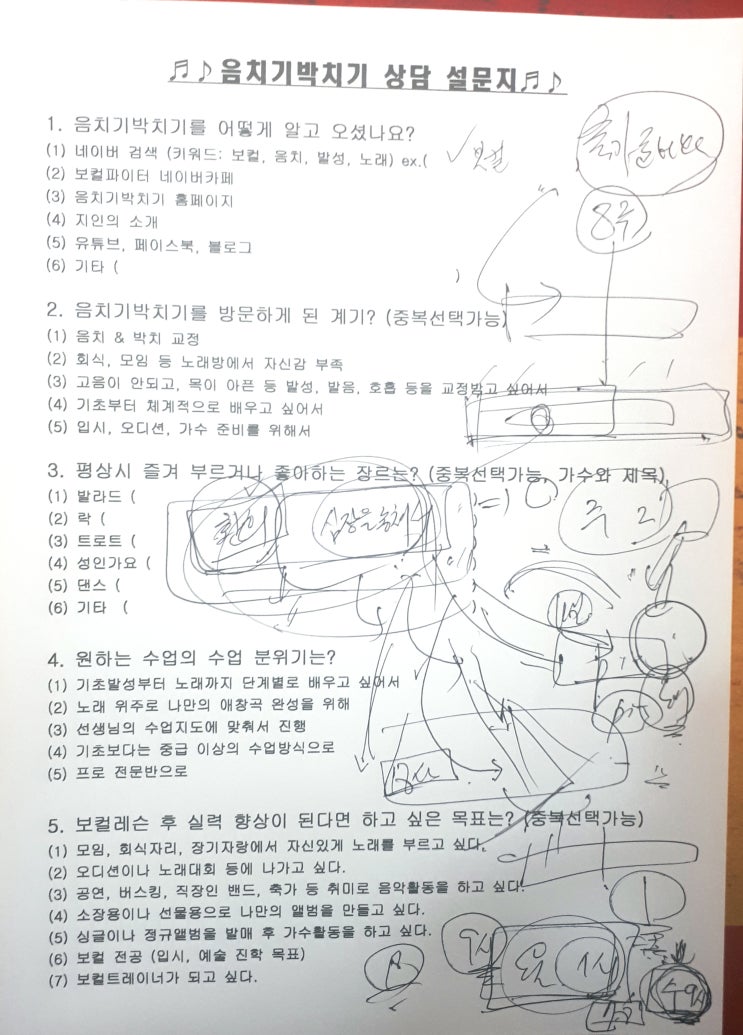 ♬♪음치기박치기 상담 설문지♬♪
1. 음치기박치기를 어떻게 알고 오셨나요?
(1) 네이버 검색 (키워드: 보컬, 음치, 발성, 노래) ex.( ✓보컬
(2) 보컬파이터 네이버카페
(3) 음치기박치기 홈페이지
(4) 지인의 소개
(5) 유튜브, 페이스북, 블로그
(6) 기타 ( )
8주
2. 음치기박치기를 방문하게 된 계기? (중복선택가능)
(1) 음치 & 박치 교정
(2) 회식, 모임 등 노래방에서 자신감 부족
(3) 고음이 안되고, 목이 아픈 등 발성, 발음, 호흡 등을 교정받고 싶어서
(4) 기초부터 체계적으로 배우고 싶어서
(5) 입시, 오디션, 가수 준비를 위해서
3. 평상시 즐겨 부르거나 좋아하는 장르는? (중복선택가능, 가수와 제목)
(1) 발라드 (
(2) 락 (
(3) 트로트 (
(4) 성인가요 (
(5) 댄스 (
(6) 기타 (
환희
주 2
4. 원하는 수업의 수업 분위기는?
(1) 기초발성부터 노래까지 단계별로 배우고 싶어서
(2) 노래 위주로 나만의 애창곡 완성을 위해
(3) 선생님의 수업지도에 맞춰서 진행
(4) 기초보다는 중급 이상의 수업방식으로
(5) 프로 전문반으로
5. 보컬레슨 후 실력 향상이 된다면 하고 싶은 목표는? (중복선택가능)
(1) 모임, 회식자리, 장기자랑에서 자신있게 노래를 부르고 싶다.
(2) 오디션이나 노래대회 등에 나가고 싶다.
(3) 공연, 버스킹, 직장인 밴드, 축가 등 취미로 음악활동을 하고 싶다.
(4) 소장용이나 선물용으로 나만의 앨범을 만들고 싶다.
(5) 싱글이나 정규앨범을 발매 후 가수활동을 하고 싶다.
(6) 보컬 전공 (입시, 예술 진학 목표)
(7) 보컬트레이너가 되고 싶다.
A
9시
1시